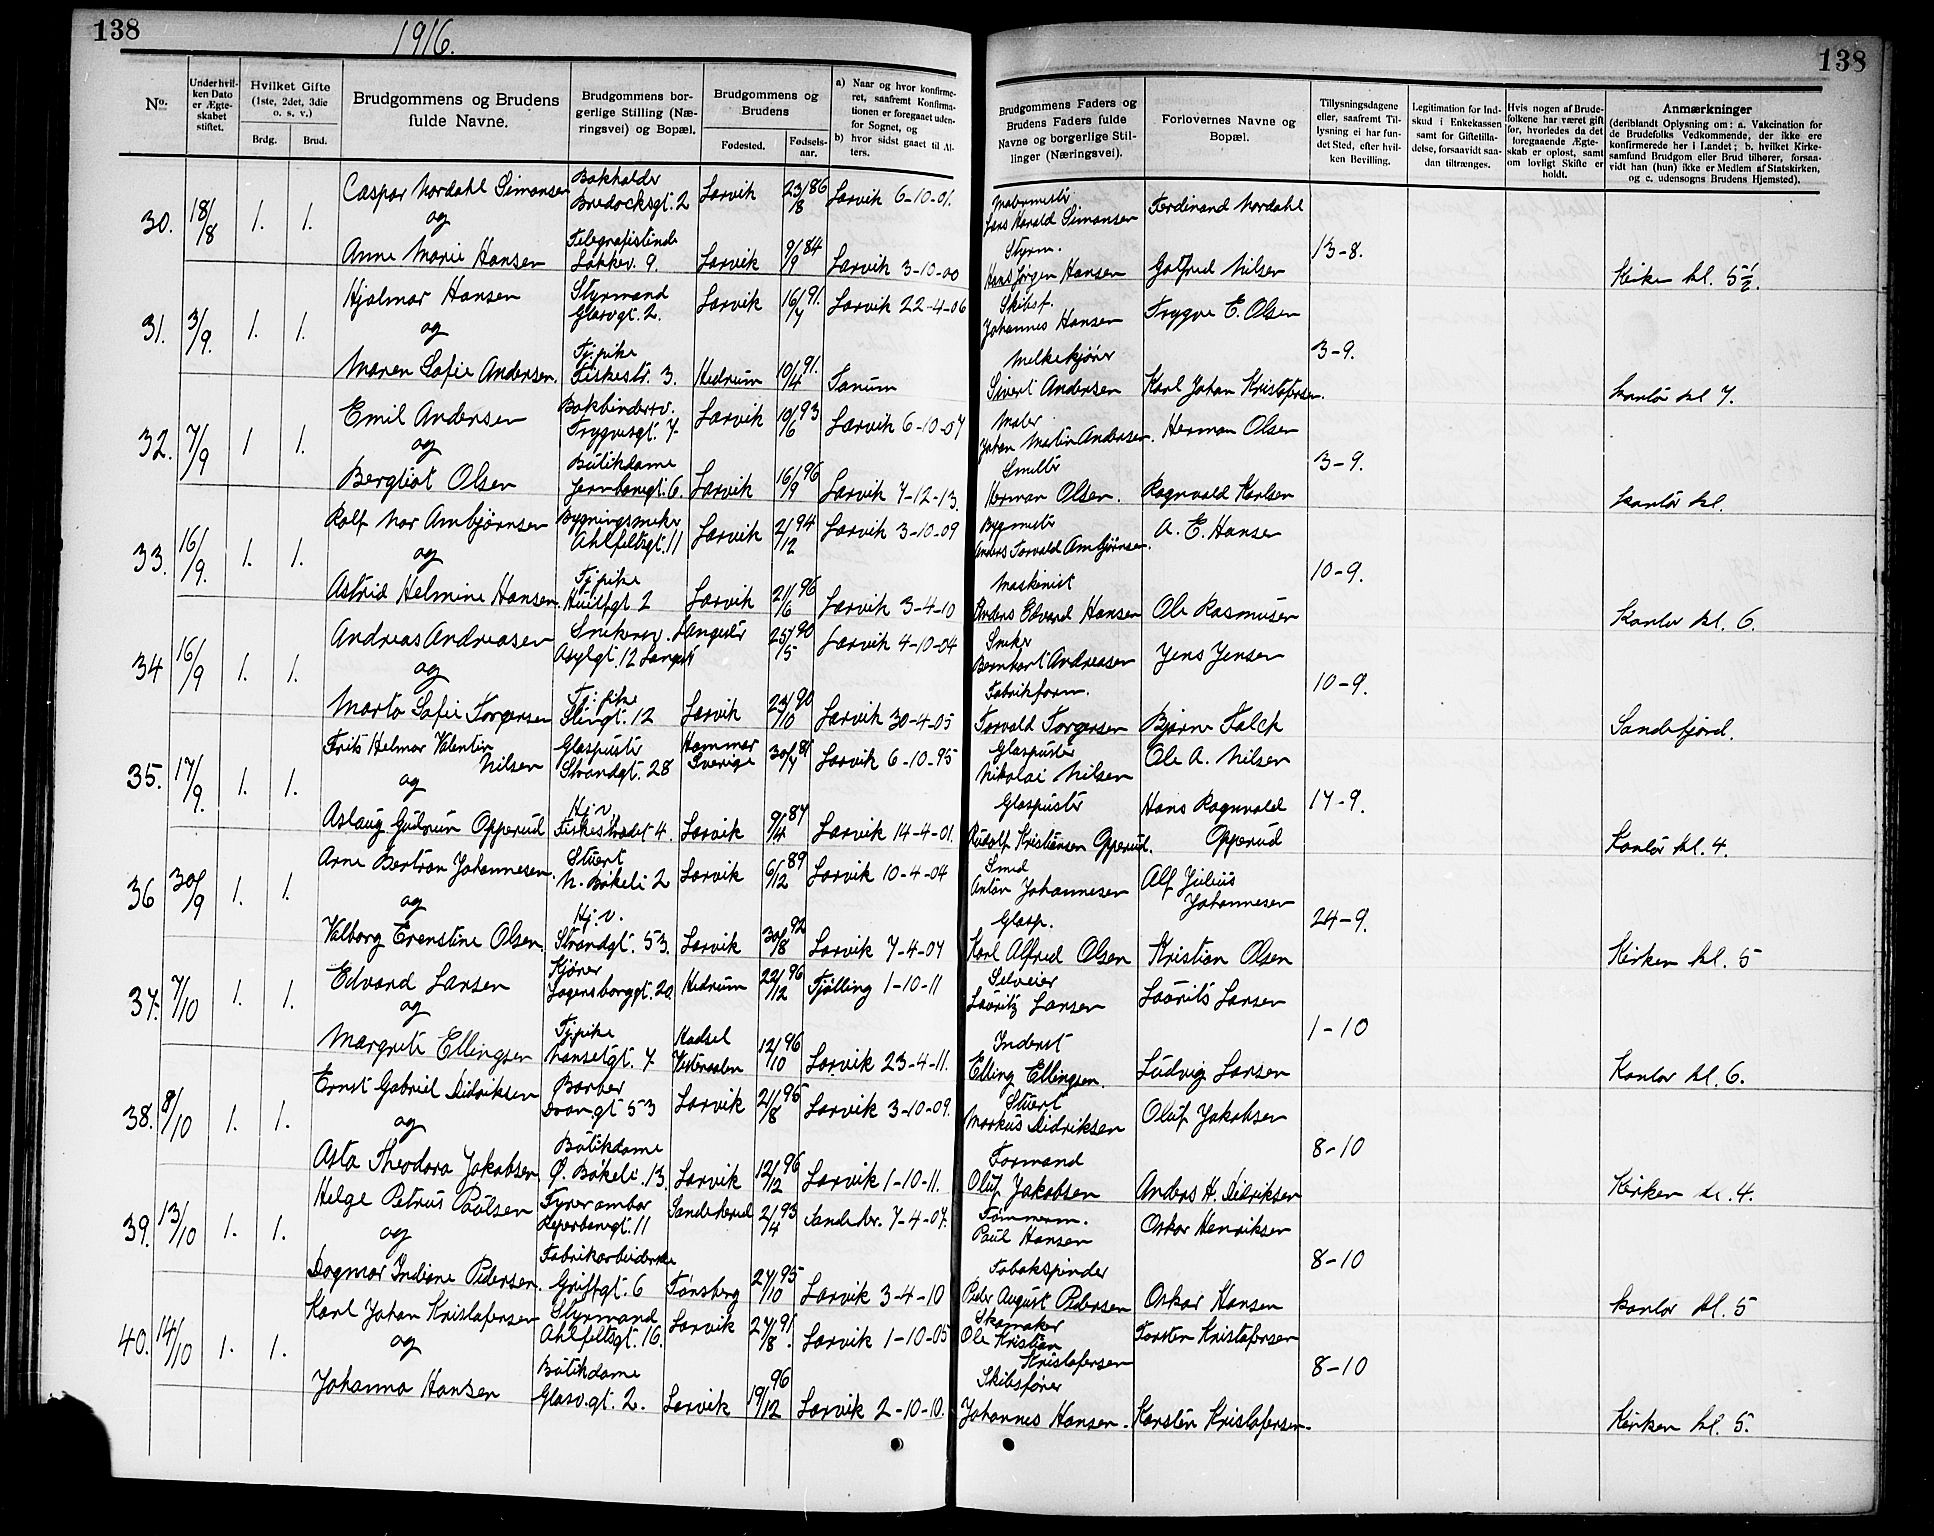 138
1916.
No.
Underhvil-
ken Dato
er Ægte-
skabet
stiftet.
Hvilket Gifte
(1ste, 2det, 3die
o. s. v.)
Brdg.
Brud.
Brudgommens og Brudens
fulde Navne.
Brudgommens bor-
gerlige Stilling (Næ-
ringsvei) og Bopæl.
Brudgommens og
Brudens
Fødested.
Fødsels-
aar.
a) Naar og hvor konfirme-
ret, saafremt Konfirma-
tionen er foregaaet uden-
for Sognet, og
b) hvor sidst gaaet til Al-
ters.
30. 18/8 1. 1.
Caspar Nordahl Simonsen Bokholder Larvik 23/8 86 Larvik 6-10-01.
Bredocksgt. 2
og
Telegrafistinde
Anne Marie Hansen Løkkev. 9. Larvik 9/9 84 Larvik 3-10-00
31. 3/9. 1. 1.
Hjalmar Hansen Styrmand Larvik 16/7 91. Larvik 22-4-06
Glasvgt. 2.
og
Tj. pike
Maren Sofie Andersen. Fiskestr. 3. Hedrum 10/4 91. Tanum
32. 7/9 1 1.
Emil Andersen Bokbinderv. Larvik 10/6 93 Larvik 6-10-07
Trygvesgt. 7
og
Butikdame
Bergliot Olsen Jernbanegt. 6. Larvik 16/9 96 Larvik 7-12-13.
33. 16/9. 1. 1.
Rolf Nor Ambjørnsen Bygningssneker Larvik 2/12 94 Larvik 3-10-09
Ahlfeltsgt. 11
og
Tj. pike
Astrid Helmine Hansen. Huitfgt 2 Larvik 21/6 96 Larvik 3-4-10
34 16/9 1. 1.
Andreas Andreasen Snekersv. Langestr 25/5 90 Larvik 4-10-04
Asylgt. 12
og
Tj. pike
Marta Sofie Torgersen Stengt. 12 Larvik 23/10 90 Larvik 30-4-05
35. 17/9. 1. 1.
Frits Helmar Valentin Glaspuster Hammar 30/7 81 Larvik 6-10-95
Nilsen Strandgt. 28 Sverige
og
Hj. v.
Aslaug Gudrun Opperud Fiskestrædet 4. Larvik 9/4 87 Larvik 14-4-01.
36 30/9 1. 1.
Arne Bertran Johannesen. Stuert Larvik 6/12 89 Larvik 10-4-04
N. Bökeli 2
og
Hj. v.
Valborg Erenstine Olsen. Strandgt. 53. Larvik 30/8 92 Larvik 7-4-07
37. 7/10 1. 1.
Edvard Larsen Kjører Hedrum 22/12 96 Tjølling 1-10-11
Lagensborggt. 20.
og
Tj. pike Hadsel
Margrete Ellingsen Nansetgt. 7 Vesteraalen 12/10 96 Larvik 23-4-11.
38. 8/10 1. 1.
Ernst Gabriel Didriksen Barber Larvik 21/8 95 Larvik 3-10-09.
Dran.gt 53
og
Butikdame
Asta Theodora Jakobsen. Ø. Bökeli. 13. Larvik 12/12 96 Larvik 1-10-11.
39. 13/10 1. 1.
Helge Petrus Paulsen Fyrverambar Sandeherred 2/4 93 Sandeher. 7-4-07.
Reperbanegt. 11
og
Fabrikarbeiderske
Dagmar Indiane Pedersen. Griffgt. 6 Tønsberg 27/10 95 Larvik 3-4-10
40. 14/10 1. 1.
Karl Johan Kristofersen Styrmand Larvik 27/8 91. Larvik 1-10-05
Ahlfeltsgt. 16.
og
Butikdame
Johanna Hansen Glasv.gt. 2. Larvik 19/12 96 Larvik 2-10-10.
138
Brudgommens Faders og
Brudens Faders fulde
Navne og borgerlige Stil-
linger (Næringsvei).
Forlovernes Navne og
Bopæl.
Tillysningsdagene
eller, saafremt Til-
lysning ei har fun-
det Sted, efter hvil-
ken Bevilling.
Legitimation for Ind-
skud i Enkekassen
samt for Giftetilla-
delse, forsaavidt saa-
dan tiltrænges.
Hvis nogen af Brude-
folkene har været gift
før, hvorledes da det
foregaaende Ægte-
skab er opløst, samt
om lovligt Skifte er
holdt.
Anmærkninger
(deriblandt Oplysning om: a. Vakcination for
de Brudefolks Vedkommende, der ikke ere
konfirmerede her i Landet; b. hvilket Kirke-
samfund Brudgom eller Brud tilhører, forsaa-
vidt han (hun) ikke er Medlem af Statskirken,
og c. udensogns Brudens Hjemsted).
Malermester
Lars Harald Simonsen Ferdinand Nordahl
Styrm. 13-8.
Hans Jørgen Hansen Gotfred Nilsen Kirken kl. 5 1/2.
Skibsf.
Johannes Hansen Trygve E. Olsen
Melkekjører 3-9.
Sivert Andersen Karl Johan Kristofersen. kontor kl 7.
Maler
Johan Martin Andersen. Herman Olsen
Smelter 3-9.
Herman Olsen. Ragnvald Karlsen kontor kl.
Bygmester
Anders Torvald Ambjørnsen. A. E. Hansen
Maskinist 10-9.
Anders Edvard Hansen Ole Rasmusen Kontor kl. 6.
Sneker
Bernhart Andreasen Jens Jensen
Fabrikform. 10-9.
Torvald Torgersen Bjarne Falck Sandefjord.
Glaspuster
Nikolai Nilsen Ole A. Nilsen
Glaspuster Hans Ragnvald 17-9.
Rudolf Kristiansen Opperud. Opperud Kontor kl. 4.
Smed
Anton Johannesen Alf Julius
Johannesen
Glasp. 24-9.
Karl Alfred Olsen Kristian Olsen Kirken kl. 5
Selveier
Lauritz Larsen Laurits Larsen
Inderst 1-10
Elling Ellingsen. Ludvig Larsen Kontor kl. 6.
Stuert
Markus Didriksen Oluf Jakobsen
Formand 8-10
Oluf Jakobsen Anders H. Didriksen Kirken kl. 4.
Tømmerm.
Paul Hansen Oskar Henriksen
Tobakspinder 8-10
Peder August Pedersen Oskar Hansen kontor kl. 5
Skomaker
Ole Kristian Torsten Kristofersen
Kristofersen
Skibsfører 8-10
Johannes Hansen. Karsten Kristofersen. Kirken kl. 5.